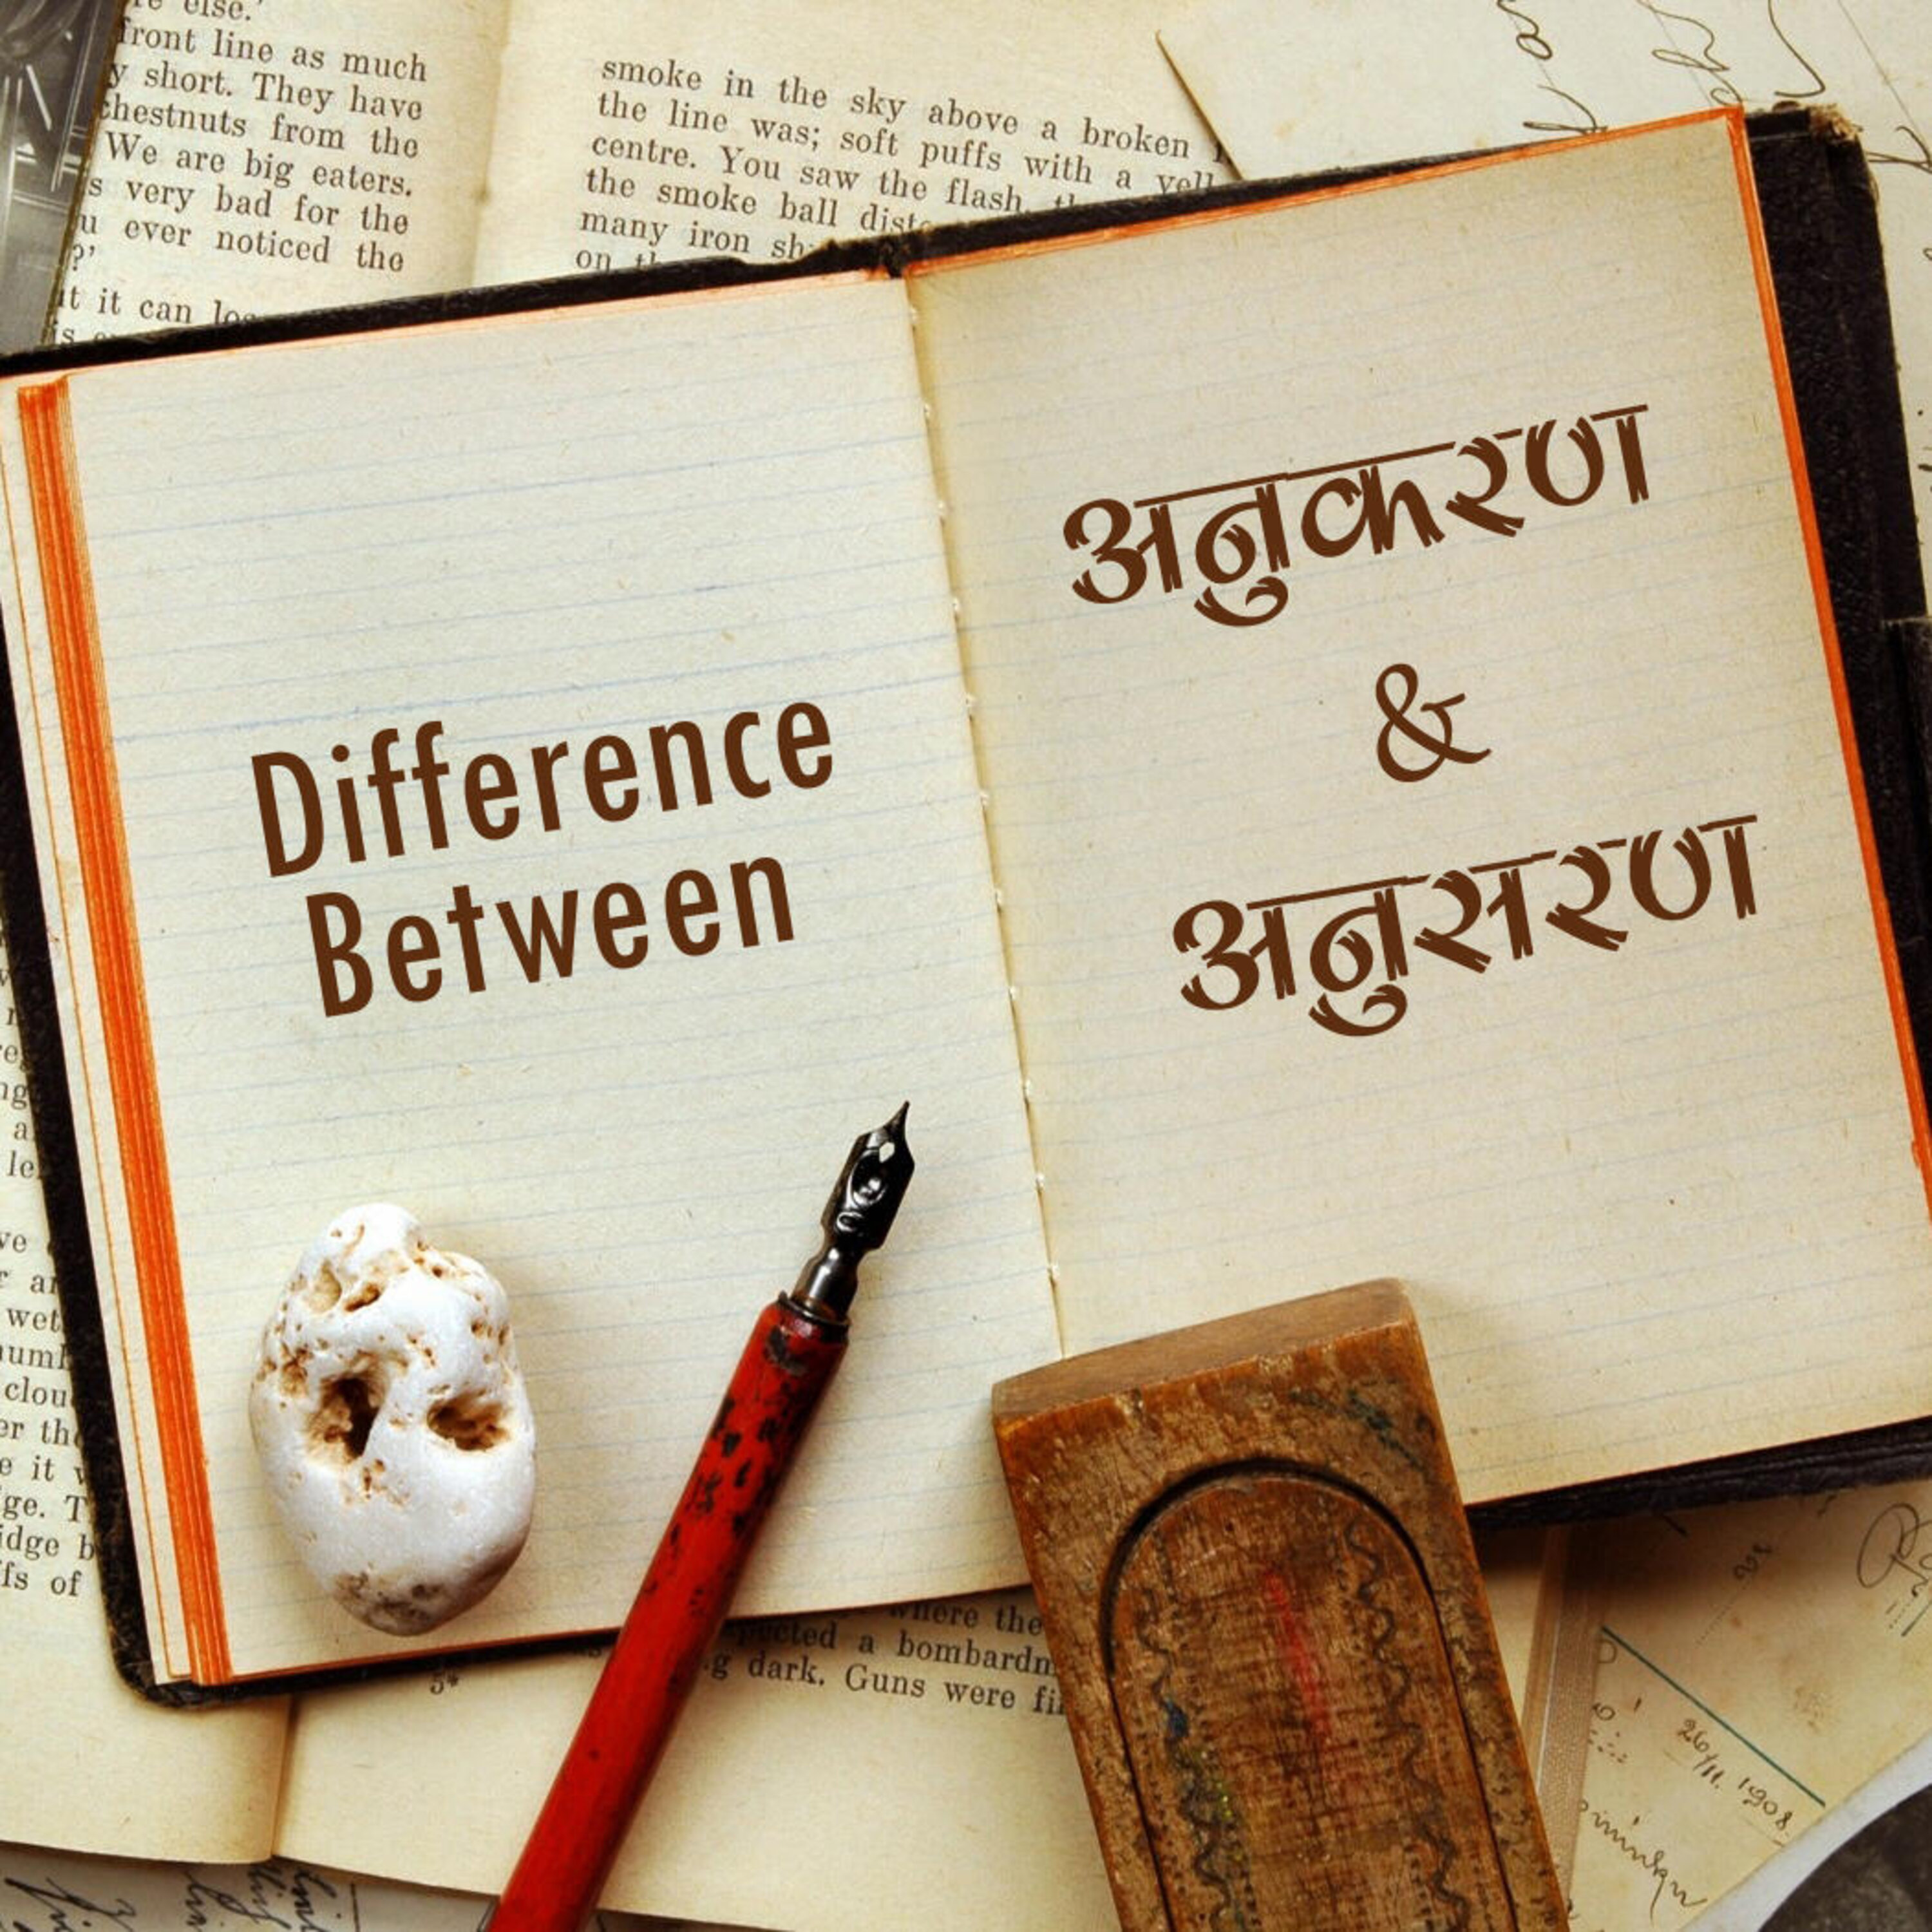 re else.'
front line as much
y short. They have
chestnuts from the
We are big eaters.
s very bad for the
u ever noticed the
?'
it it can
smoke in the sky above a broken
the line was; soft puffs with a
centre. You saw the flash
the smoke ball
many iron
on
Difference
Between
अनुकरण
&
अनुसरण
a
le
ve
r
wet
clou
er
e it
ge. T
idge b
fs of
where the
a bombardm
dark. Guns were
5*
26/11. 1908.